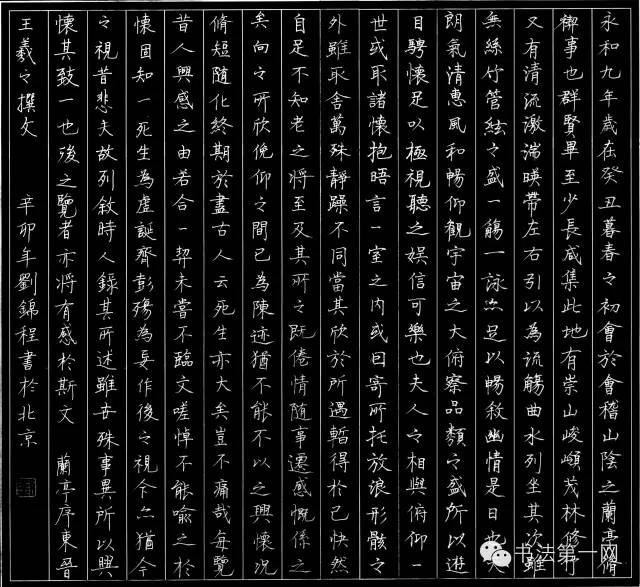 永和九年歲在癸丑暮春之初會於會稽山陰之蘭亭脩
禊事也群賢畢至少長咸集此地有崇山峻嶺茂林修竹
又有清流激湍暎帶左右引以為流觴曲水列坐其次雖
無絲竹管絃之盛一觴一詠亦足以暢敘幽情是日也天
朗氣清惠風和暢仰觀宇宙之大俯察品類之盛所以遊
目騁懷足以極視聽之娛信可樂也夫人之相與俯仰一
世或取諸懷抱晤言一室之內或因寄所托放浪形骸之
外雖取舍萬殊靜躁不同當其欣於所遇暫得於己快然
自足不知老之將至及其所之既倦情隨事遷感慨係之
矣向之所欣俛仰之間已為陳迹猶不能不以之興懷況
脩短隨化終期於盡古人云死生亦大矣豈不痛哉每覽
昔人興感之由若合一契未嘗不臨文嗟悼不能喻之於
懷固知一死生為虛誕齊彭殤為妄作後之視今亦猶今
之視昔悲夫故列敘時人錄其所述雖世殊事異所以興
懷其致一也後之覽者亦將有感於斯文 蘭亭序東晉
王羲之撰文 辛卯年劉錦程書於北京
书法第一网